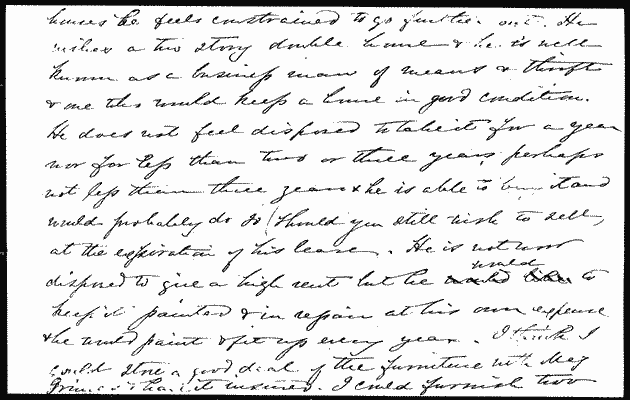 houses he feels constrained to go further out. He
wishes a two story double house & he is well
known as a business man of means & thrift
& one who would keep a house in good condition.
He does not feel disposed to take it for a year
nor for less than two or three years, perhaps
not less than three years & he is able to buy it and
would probably do so (should you still wish to sell,
at the expiration of his lease. He is not now
disposed to give a high rent but he would to
keep it painted & in repair at his own expense
& he would paint & fit up every year. I think I
could store a good deal of the furniture with Meg
& have it insured. I could furnish two